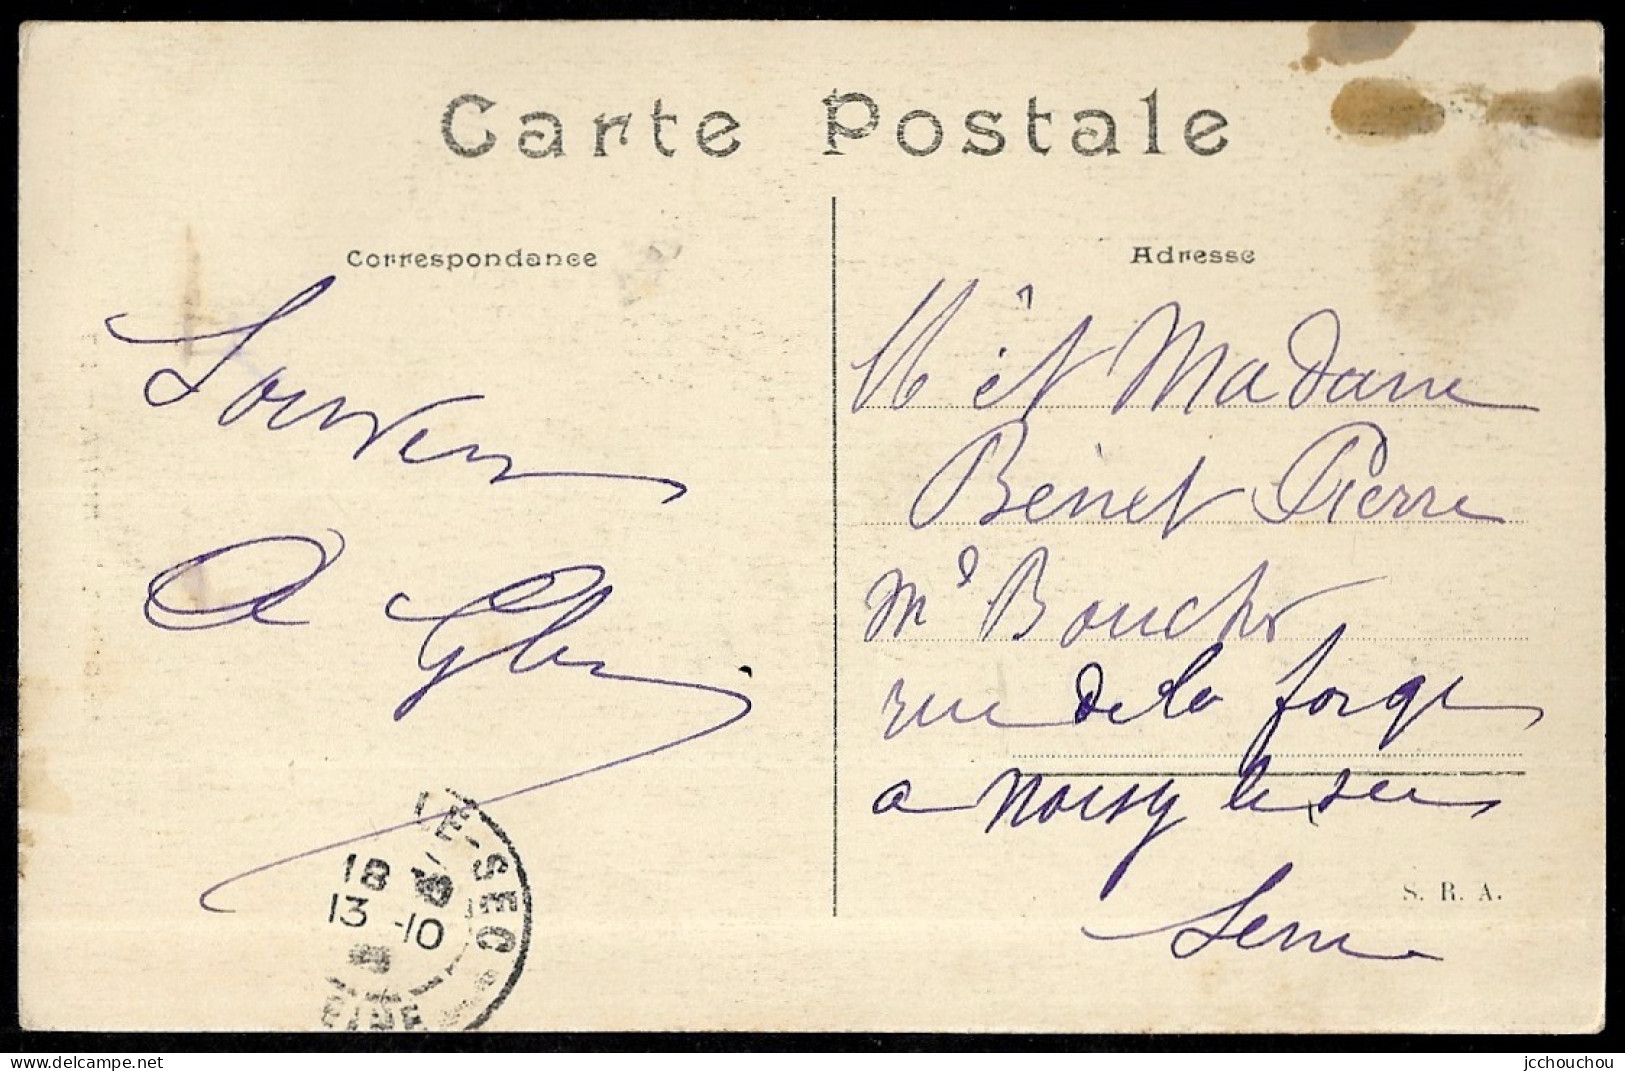 Carte Postale
Correspondance
Souvenir
A
LE-SEC
18
13 -10
Adresse
M et Madame
Benet Pierre
Md Boucher
rue de la forge
a Noisy le sec
Seine
S. R. A.
delcampe.net
jcchouchou